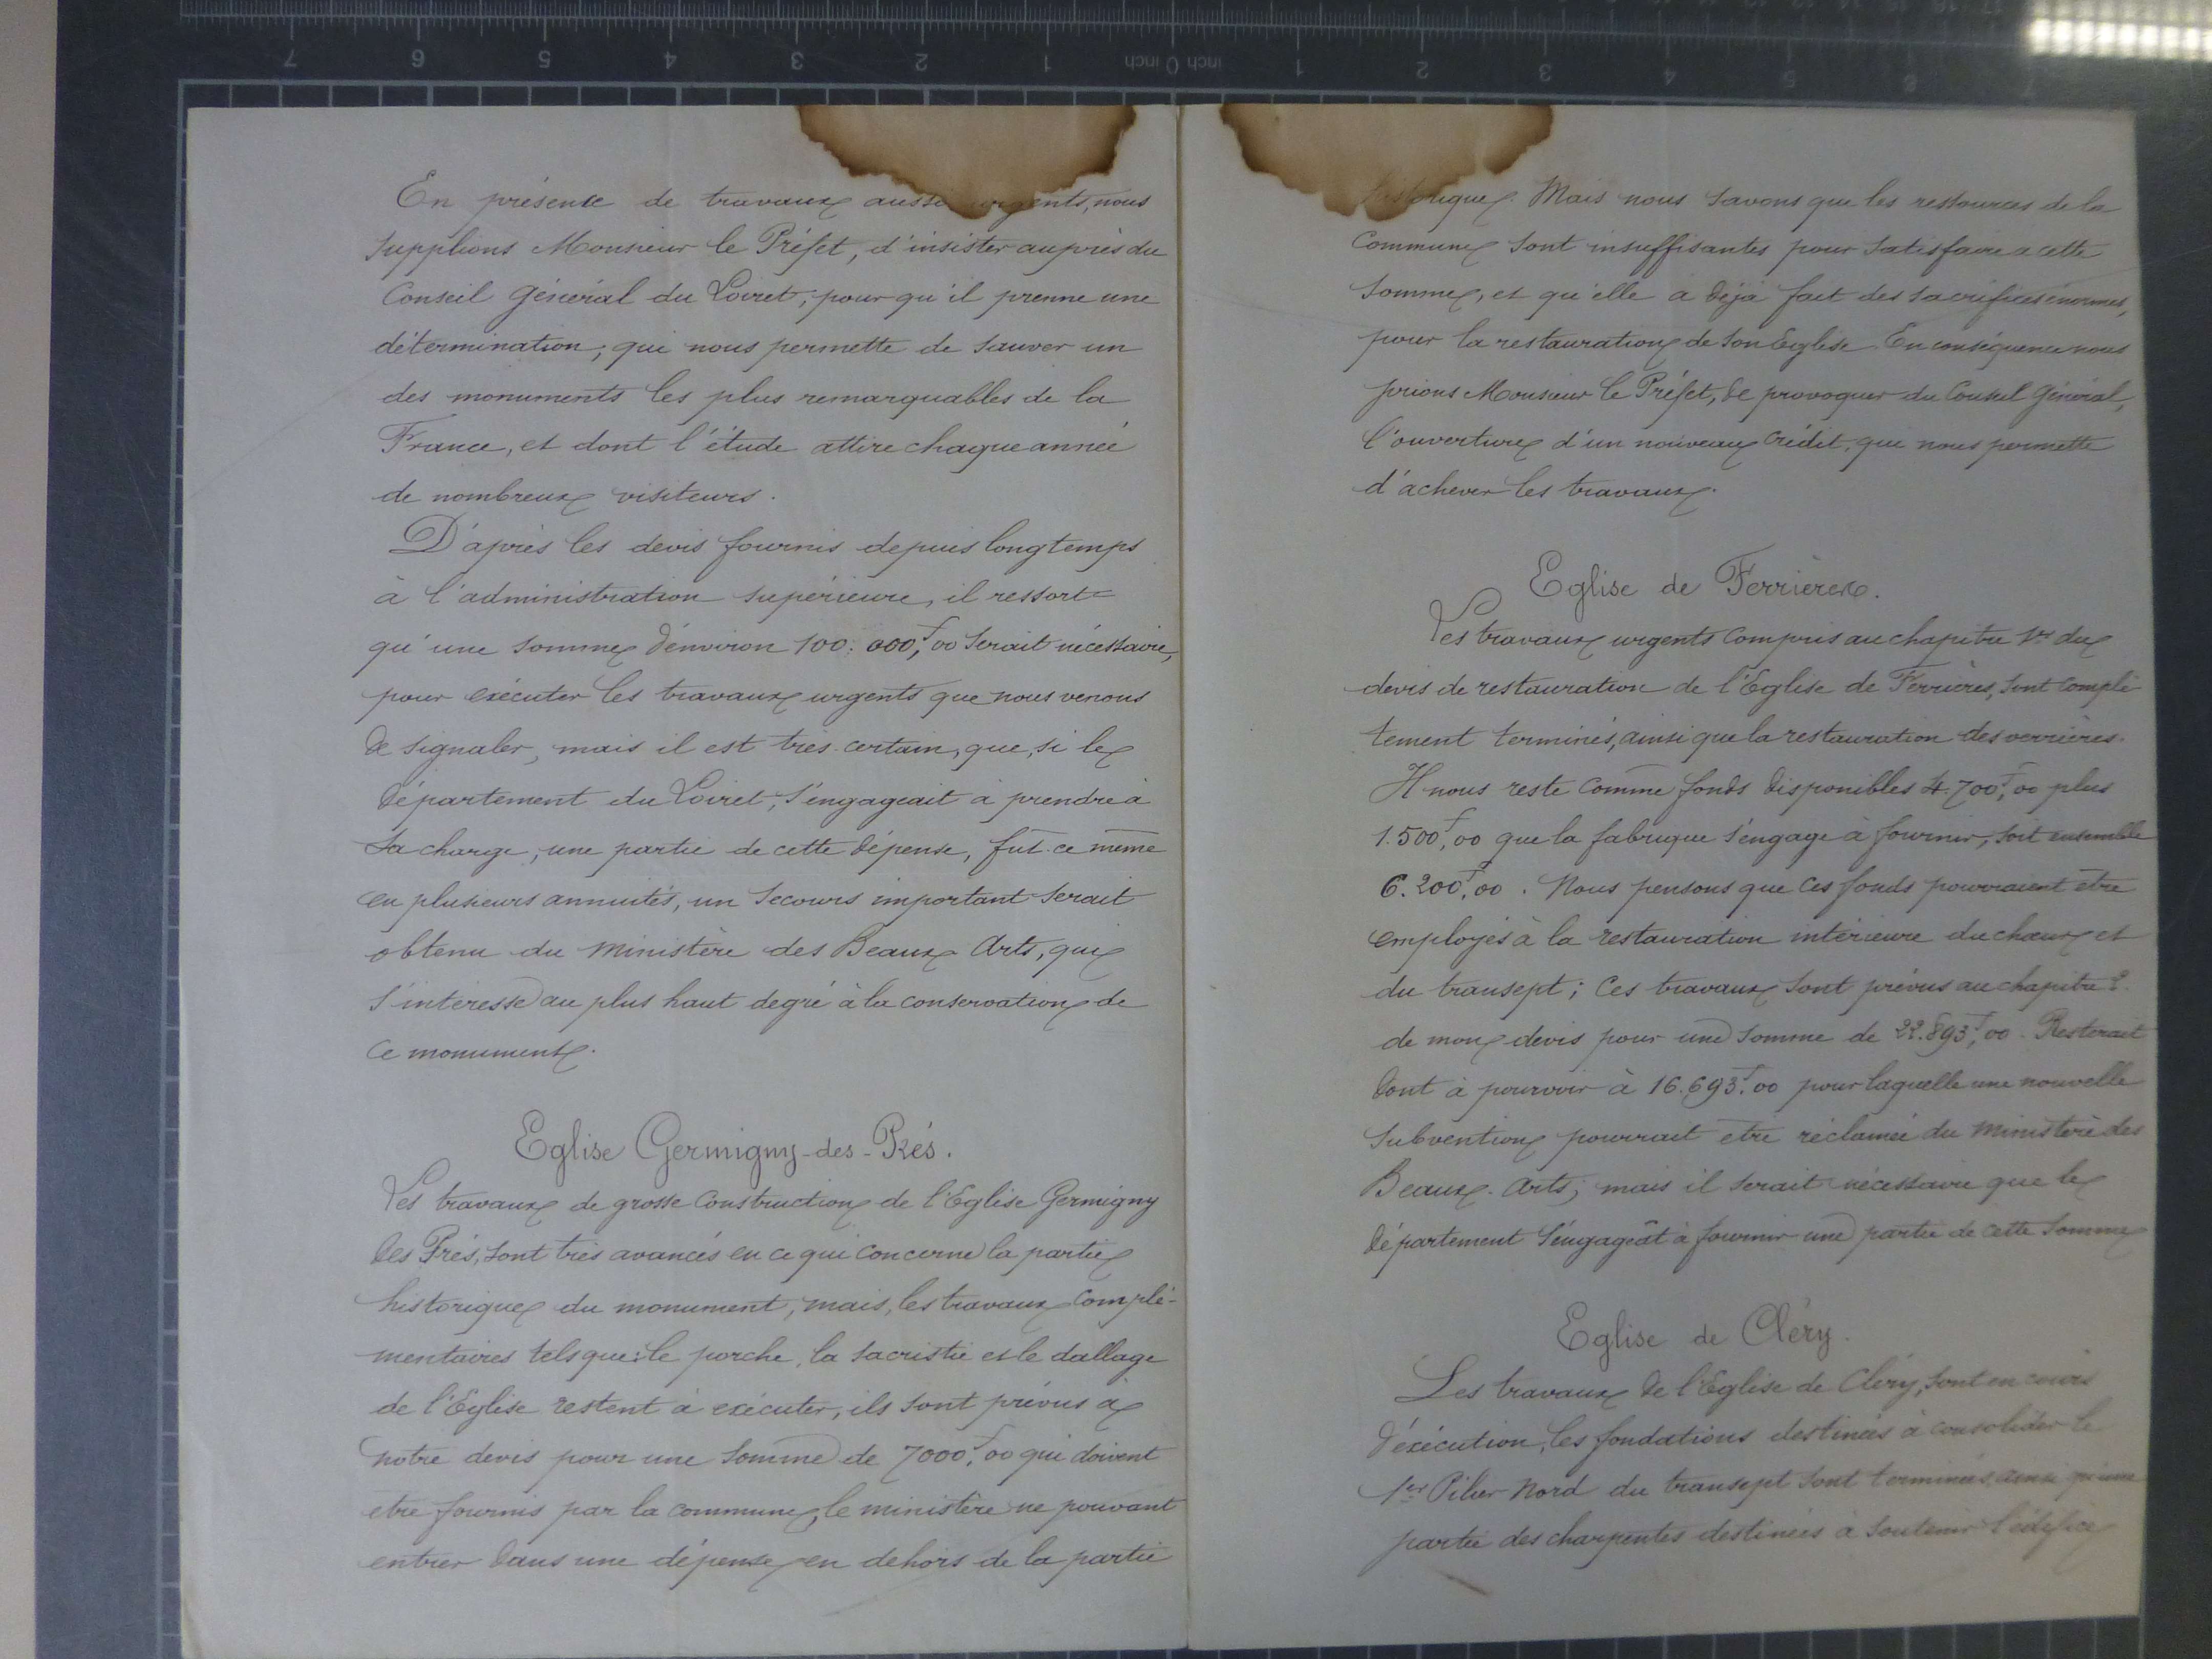 En présence de travaux aussi urgents, nous
supplions Monsieur le Préfet, d'insister auprès du
Conseil Général du Loiret, pour qu'il prenne une
détermination, qui nous permette de sauver un
des monuments les plus remarquables de la
France, et dont l'étude attire chaque année
de nombreux visiteurs.
D'après les devis fournis depuis longtemps
à l'administration supérieure, il ressort
qu'une somme d'environ 100.000,f00 serait nécessaire,
pour exécuter les travaux urgents que nous venons
de signaler, mais il est très certain, que, si le
département du Loiret, s'engageait à prendre à
sa charge, une partie de cette dépense, fut-ce même
en plusieurs annuités, un secours important serait
obtenu du ministère des Beaux Arts, qui
s'intéresse au plus haut degré à la conservation de
ce monument.
Eglise Germigny-des-Prés.
Les travaux de grosse construction de l'Eglise Germigny
des Prés, sont très avancés en ce qui concerne la partie
historique du monument, mais, les travaux complé-
mentaires tels que: le porche, la sacristie et le dallage
de l'Eglise restent à exécuter, ils sont prévus à
notre devis pour une somme de 7000,f00 qui doivent
etre fournis par la commune, le ministère ne pouvant
entrer dans une dépense en dehors de la partie
historique. Mais nous savons que les ressources de la
commune sont insuffisantes pour satisfaire a cette
somme, et qu'elle a déjà fait des sacrifices énormes,
pour la restauration de son Eglise. En conséquence nous
prions Monsieur le Préfet, de provoquer du Conseil Général,
l'ouverture d'un nouveau crédit, qui nous permette
d'achever les travaux.
Eglise de Ferrières.
Les travaux urgents compris au chapitre 1er du
devis de restauration de l'Eglise de Ferrières, sont complè
tement terminés, ainsi que la restauration des verrières.
Il nous reste comme fonds disponibles 4.700,f00 plus
1.500,f00 que la fabrique s'engage à fournir, soit ensemble
6.200,f00. Nous pensons que ces fonds pourraient etre
employés à la restauration intérieure du chœur et
du transept; ces travaux sont prévus au chapitre 2
de mon devis pour une somme de 22.893,f00. Resterait
dont à pourvoir à 16.693,f00 pour laquelle une nouvelle
subvention pourrait etre réclamée du ministère des
Beaux-Arts; mais il serait nécessaire que le
département s'engageât à fournir une partie de cette somme
Eglise de Cléry.
Les travaux de l'Eglise de Cléry, sont en cours
d'exécution, les fondations destinées à consolider le
1er Pilier Nord du transept sont terminées, ainsi qu'une
partie des charpentes destinées à soutenir l'édifice
7 6 5 4 3 2 1 inch 0 inch 1 2 3 4 5 6 7